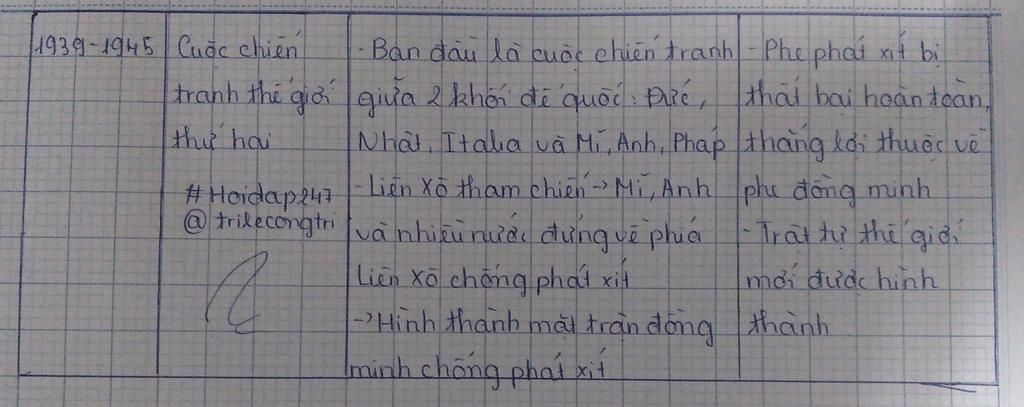 1939-1945
Cuộc chiến
tranh thế giới
thứ hai
#Hoidap247
@trilecongtri
- Ban đầu là cuộc chiến tranh
giữa 2 khối đế quốc: Đức,
Nhật, Italia và Mĩ, Anh, Pháp
- Liên Xô tham chiến → Mĩ, Anh
và nhiều nước đứng về phía
Liên Xô chống phát xít
→ Hình thành mặt trận đồng
minh chống phát xít
- Phe phát xít bị
thất bại hoàn toàn,
thắng lợi thuộc về
phe đồng minh
- Trật tự thế giới
mới được hình
thành